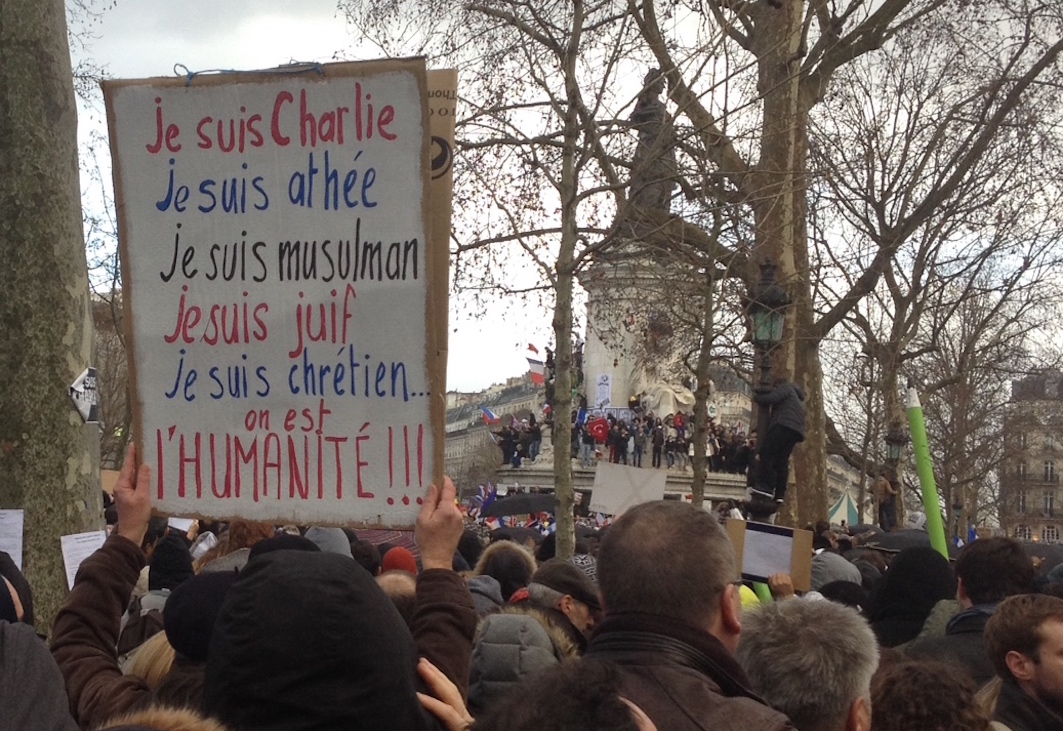 je suis Charlie
je suis athée
je suis musulman
je suis juif
je suis chrétien...
on est
l'HUMANITÉ !!!